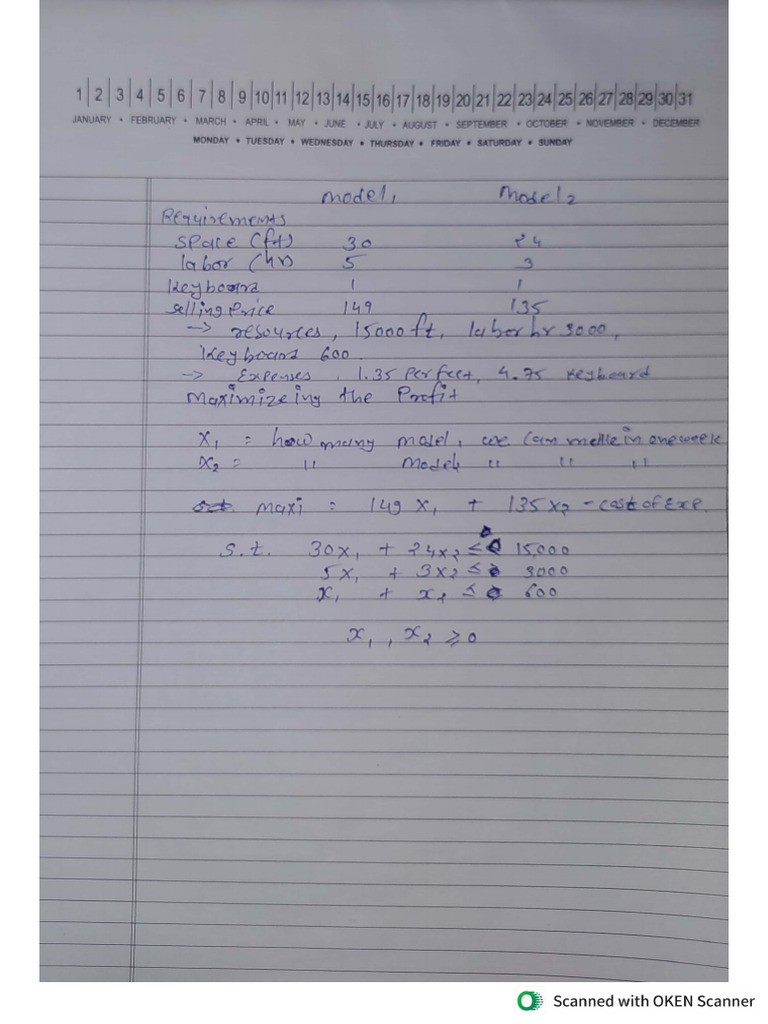 1 | 2 | 3 | 4 | 5 | 6 | 7 | 8 | 9 | 10 | 11 | 12 | 13 | 14 | 15 | 16 | 17 | 18 | 19 | 20 | 21 | 22 | 23 | 24 | 25 | 26 | 27 | 28 | 29 | 30 | 31
JANUARY • FEBRUARY • MARCH • APRIL • MAY • JUNE • JULY • AUGUST • SEPTEMBER • OCTOBER • NOVEMBER • DECEMBER
MONDAY • TUESDAY • WEDNESDAY • THURSDAY • FRIDAY • SATURDAY • SUNDAY
model₁ model₂
Requirements
space (ft) 30 24
labor (hr) 5 3
Keyboard 1 1
selling Price 149 135
→ resources, 15000 ft, labor hr 3000,
Keyboard 600.
→ Expenses, 1.35 per feet, 4.75 keyboard
Maximizeing the Profit
x₁ = how many model, we can make in one week
x₂ = " model₂ " " "
maxi = 149 x₁ + 135 x₂ - cost of Exp.
s.t. 30x₁ + 24x₂ ≤ 15,000
5x₁ + 3x₂ ≤ 3000
x₁ + x₂ ≤ 600
x₁, x₂ ≥ 0
Scanned with OKEN Scanner